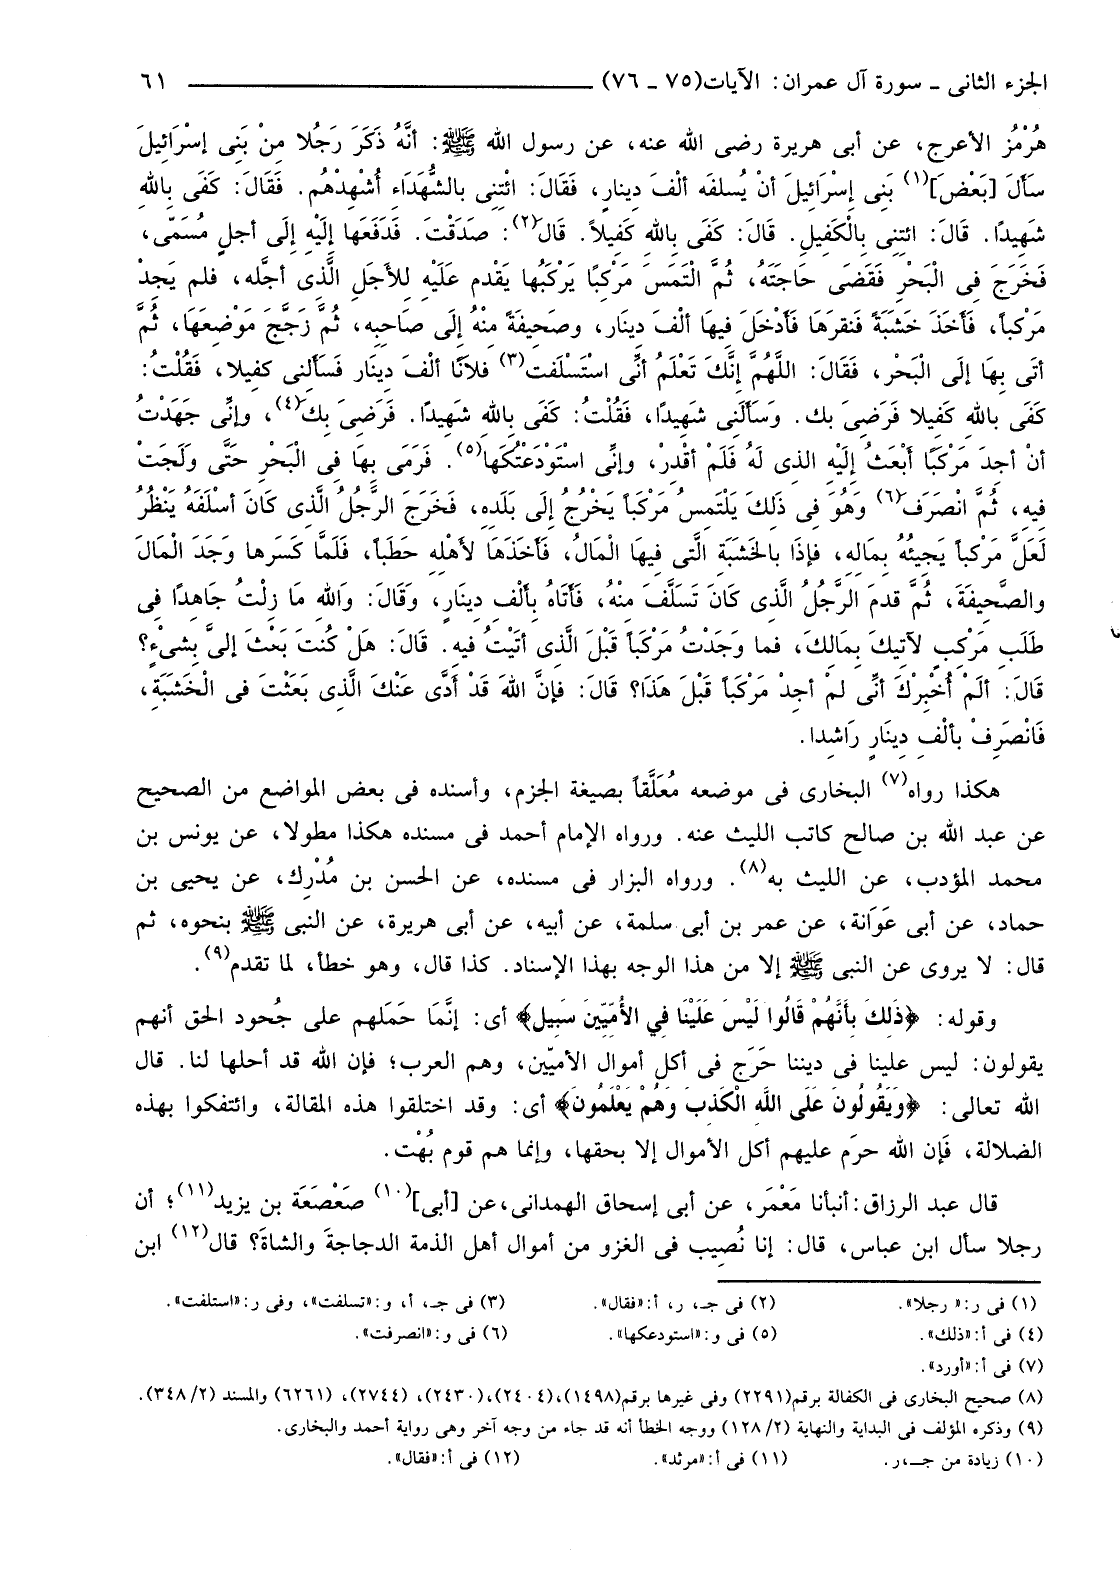 الجزء الثانى ـ سورة آل عمران: الآيات(٧٥ ـ ٧٦) ٦١
هُرْمُز الأعرج، عن أبى هريرة رضى الله عنه، عن رسول الله ﷺ: أنَّهُ ذَكَرَ رَجُلا مِنْ بَنِى إسْرَائِيلَ
سَألَ [بَعْضَ](١) بَنِى إسْرَائِيلَ أنْ يُسلفَه ألْفَ دينارٍ، فَقَالَ: ائْتِنِى بالشُّهَدَاءِ أُشْهِدْهُم. فَقَالَ: كَفَى بِاللهِ
شَهِيدًا. قَالَ: ائتِنِى بِالْكَفِيلِ. قَالَ: كَفَى بِاللهِ كَفِيلاً. قَالَ(٢): صَدَقْتَ. فَدَفَعَها إلَيْهِ إلَى أجلٍ مُسَمّى،
فَخَرَجَ فِى الْبَحْرِ فَقَضَى حَاجَتَهُ، ثُمَّ الْتَمَسَ مَرْكبًا يَرْكَبُها يَقْدم عَلَيْهِ للأجَلِ الَّذِى أجَّله، فلم يَجِدْ
مَرْكباً، فَأخَذَ خَشَبَةً فَنقرَهَا فَأدْخَلَ فِيهَا ألْفَ دينَارٍ، وصَحِيفَةً مِنْهُ إلَى صَاحِبِه، ثُمَّ زَجَّجَ مَوْضِعَهَا، ثُمَّ
أتَى بِهَا إلَى الْبَحْرِ، فَقَالَ: اللَّهُمَّ إنَّكَ تَعْلَم أنِّى استَسْلَفت(٣) فلانًا ألْفَ دينَار فَسَألنِى كفيلا، فَقُلْتُ:
كَفَى بِاللهِ كَفِيلا فَرَضِىَ بِك. وَسَألَنِى شَهِيدًا، فَقُلْتُ: كَفَى بِاللهِ شَهِيدًا. فَرَضِىَ بِكَ(٤)، وإنِّى جَهَدْتُ
أنْ أجِدَ مَرْكَبًا أبْعَثُ إلَيْهِ الذِى لَهُ فَلَمْ أقْدِرْ، وإنِّى استَوْدَعْتُكَها(٥). فَرَمَى بِهَا فِى الْبَحْرِ حَتَّى وَلَجَتْ
فِيه، ثُمَّ انْصَرَفَ(٦) وَهُوَ فِى ذَلِكَ يَلْتَمِسُ مَرْكَباً يَخْرُجُ إلَى بَلَدِه، فَخَرَجَ الرَّجُلُ الَّذِى كَانَ أسْلَفَهُ يَنْظُرُ
لَعَلَّ مَرْكباً يَجِيئُهُ بِمَالِه، فإذَا بالخَشَبَةِ الَّتِى فِيهَا الْمَالُ، فَأخَذَهَا لأهْلِهِ حَطَباً، فَلَمَّا كَسَرها وَجَدَ الْمَالَ
والصَّحِيفَةَ، ثُمَّ قَدِمَ الرَّجُلُ الَّذِى كَانَ تَسَلَّفَ مِنْهُ، فَأتَاهُ بِألْفِ دِينَارٍ، وقَالَ: وَاللهِ مَا زِلْتُ جَاهِدًا فِى
طَلَبِ مَرْكبٍ لآتِيكَ بِمَالِكَ، فما وَجَدْتُ مَرْكَباً قَبْلَ الَّذِى أتَيْتُ فيه. قَالَ: هَلْ كُنتَ بَعَثْتَ إلىَّ بِشىْءٍ؟
قَالَ: ألَمْ أُخْبِرْكَ أنِّى لمْ أجِد مَرْكَباً قَبْلَ هَذَا؟ قَالَ: فإنَّ اللهَ قَدْ أدَّى عَنْكَ الَّذِى بَعَثْتَ فى الْخَشَبَةِ،
فَانْصَرِفْ بألْفِ دِينَارٍ رَاشِدا.
هكذا رواه(٧) البخارى فى موضعه مُعَلَّقاً بصيغة الجزم، وأسنده فى بعض المواضع من الصحيح
عن عبد الله بن صالح كاتب الليث عنه. ورواه الإمام أحمد فى مسنده هكذا مطولا، عن يونس بن
محمد المؤدب، عن الليث به(٨). ورواه البزار فى مسنده، عن الحسن بن مُدْرِك، عن يحيى بن
حماد، عن أبى عَوَانة، عن عمر بن أبى سلمة، عن أبيه، عن أبى هريرة، عن النبى ﷺ بنحوه، ثم
قال: لا يروى عن النبى ﷺ إلا من هذا الوجه بهذا الإسناد. كذا قال، وهو خطأ، لما تقدم(٩).
وقوله: ﴿ذَلِكَ بِأَنَّهُمْ قَالُوا لَيْسَ عَلَيْنَا فِي الأُمِّيِّينَ سَبِيل﴾ أى: إنَّمَا حَمَلهم على جُحود الحق أنهم
يقولون: ليس علينا فى ديننا حَرَج فى أكل أموال الأميّين، وهم العرب؛ فإن الله قد أحلها لنا. قال
الله تعالى: ﴿وَيَقُولُونَ عَلَى اللَّهِ الْكَذِبَ وَهُمْ يَعْلَمُونَ﴾ أى: وقد اختلقوا هذه المقالة، وائتفكوا بهذه
الضلالة، فَإن الله حرَم عليهم أكل الأموال إلا بحقها، وإنما هم قوم بُهْت.
قال عبد الرزاق: أنبأنا مَعْمَر، عن أبى إسحاق الهمدانى، عن [أبى](١٠) صَعْصَعَة بن يزيد(١١)؛ أن
رجلا سأل ابن عباس، قال: إنا نُصِيب فى الغزو من أموال أهل الذمة الدجاجةَ والشاةَ؟ قال(١٢) ابن
(١) فى ر: «رجلا». (٢) فى جـ، ر، أ: «فقال». (٣) فى جـ، أ، و: «تسلفت»، وفى ر: «استلفت».
(٤) فى أ: «ذلك». (٥) فى و: «استودعكها». (٦) فى و: «انصرفت».
(٧) فى أ: «أورد».
(٨) صحيح البخارى فى الكفالة برقم(٢٢٩١) وفى غيرها برقم(١٤٩٨)،(٢٤٠٤)،(٢٤٣٠)، (٢٧٤٤)، (٦٢٦١) والمسند (٣٤٨/٢).
(٩) وذكره المؤلف فى البداية والنهاية (١٢٨/٢) ووجه الخطأ أنه قد جاء من وجه آخر وهى رواية أحمد والبخارى.
(١٠) زيادة من جـ،ر. (١١) فى أ: «مرثد». (١٢) فى أ: «فقال».